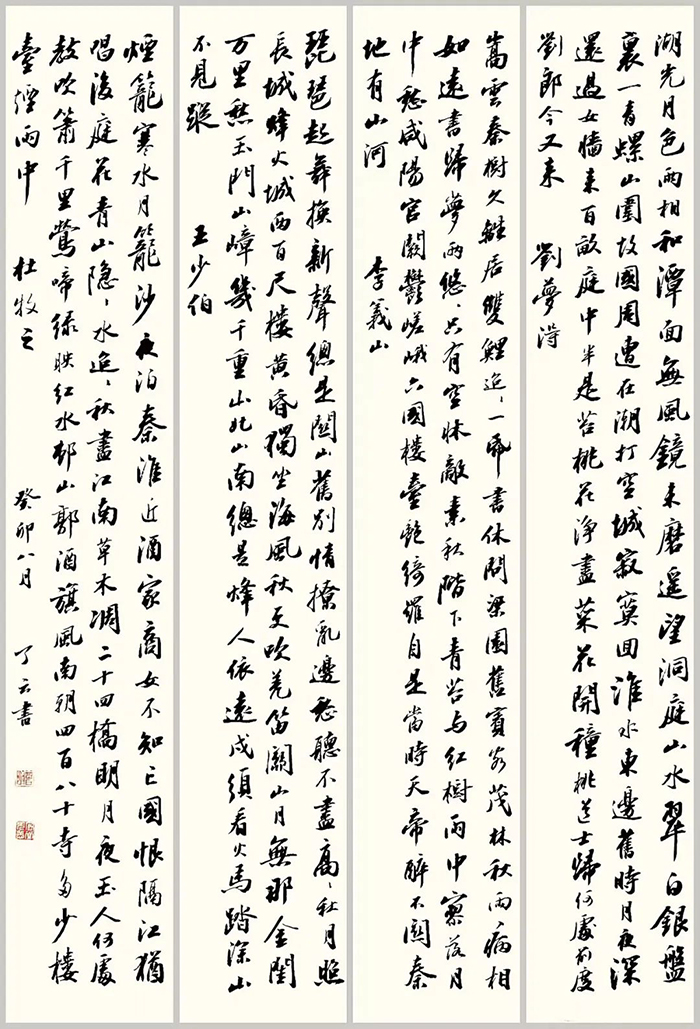 湖光月色兩相和潭面無風鏡未磨遥望洞庭山水翠白銀盤
裏一青螺山圍故國周遭在潮打空城寂寞回淮水東邊舊時月夜深
還過女牆来百畝庭中半是苔桃花淨盡菜花開種桃道士歸何處前度
劉郎今又来 劉夢得
嵩雲秦樹久離居雙鯉迢々一紙書休問梁園舊賓客茂林秋雨病相
如遠書歸夢兩悠々只有空牀敵素秋階下青苔与紅樹雨中寥落月
中愁咸陽宮闕鬱嵯峨六國樓臺艷綺羅自是當時天帝醉不關秦
地有山河 李義山
琵琶起舞換新聲總是關山舊別情撩亂邊愁聽不盡高々秋月照
長城烽火城西百尺樓黄昏獨坐海風秋更吹羌笛關山月無那金閨
万里愁玉門山嶂幾千重山北山南總是烽人依遠戍須看火馬踏深山
不見蹤 王少伯
煙籠寒水月籠沙夜泊秦淮近酒家商女不知亡國恨隔江猶
唱後庭花青山隐々水迢々秋盡江南草木凋二十四橋明月夜玉人何處
教吹簫千里鶯啼緑映紅水邨山郭酒旗風南朝四百八十寺多少樓
臺煙雨中 杜牧之 癸卯八月 了云書